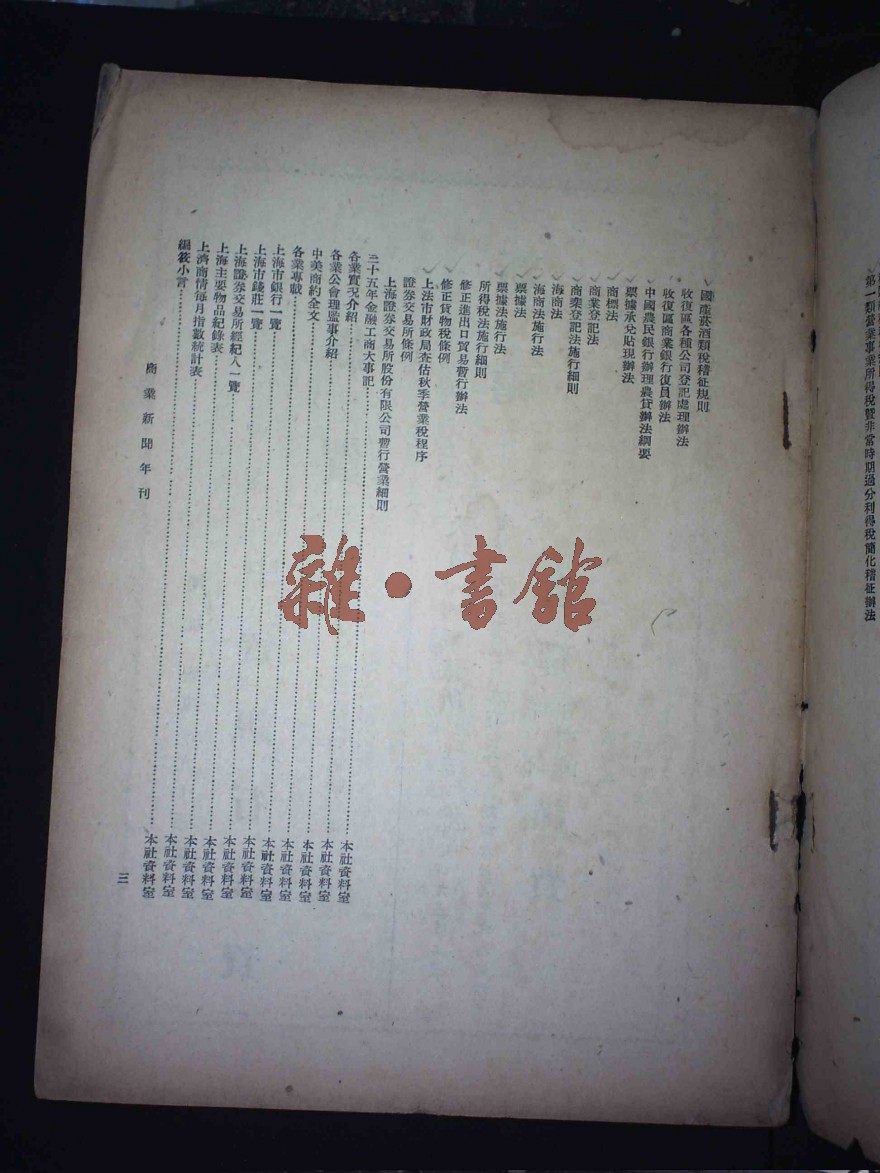 第一類營業事業所得稅暨非常時期過分利得稅簡化稽征辦法
國產菸酒類稅稽征規則
收復區各種公司登記處理辦法
收復區商業銀行復員辦法
中國農民銀行辦理農貸辦法綱要
票據承兌貼現辦法
商標法
商業登記法
商業登記法施行細則
海商法
海商法施行法
票據法
票據法施行法
所得稅法施行細則
修正進出口貿易暫行辦法
修正貨物稅條例
上法市財政局查估秋季營業稅程序
證券交易所條例
上海證券交易所股份有限公司暫行營業細則
三十五年金融工商大事記……本社資料室
各業實況介紹……本社資料室
各業公會理監事介紹……本社資料室
中美商約全文……本社資料室
各業專載……本社資料室
上海市銀行一覽……本社資料室
上海市錢莊一覽……本社資料室
上海證券交易所經紀人一覽……本社資料室
上海主要物品紀錄表……本社資料室
上濟商情每月指數統計表……本社資料室
編後小言……本社資料室
商業新聞年刊
三
雜·書館